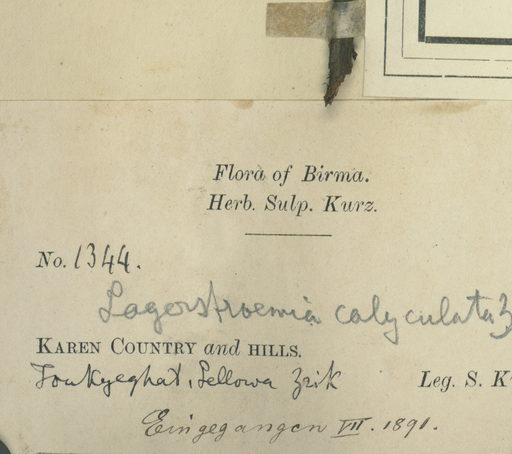 Flora of Birma.
Herb. Sulp. Kurz.
No. 1344.
Lagerstroemia calyculata
KAREN COUNTRY and HILLS.
Leg. S. K
Eingegangen VII. 1891.